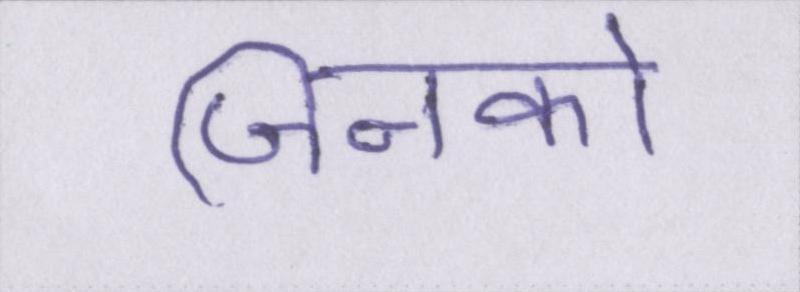 जिनको